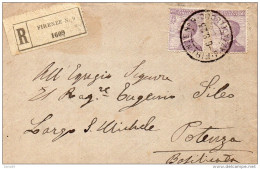 R
FIRENZE
1689
All Egregio Signore
El Rag.re Eugenio Sileo
Largo S. Michele
Potenza
Basilicata